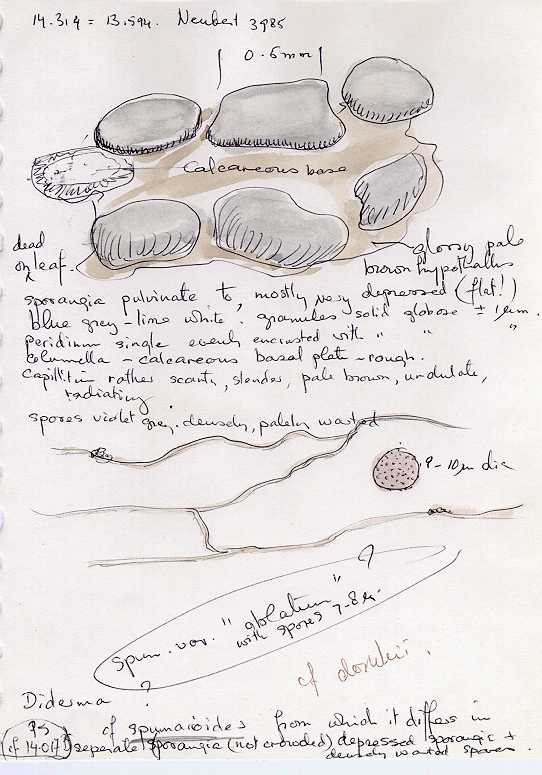 14.314 = 13.594. Neubert 3985
0.6mm
Calcareous base
dead
on leaf.
glossy pale
brown hypothallus
sporangia pulvinate to, mostly very depressed (flat!)
blue grey - lime white. granules solid globose ± 1µm.
Peridium single evenly encrusted with " " "
Columella - calcareous basal plate - rough.
Capillitium rather scanty, slender, pale brown, undulate,
radiating.
spores violet grey. densely, palely warted
9-10µ dia
?
spum. var. "oblatum"
with spores 7-8µ.
cf
Diderma ?
cf spumarioides from which it differs in
(cf 14017) separate sporangia (not crowded) depressed sporangia +
densely warted spores.